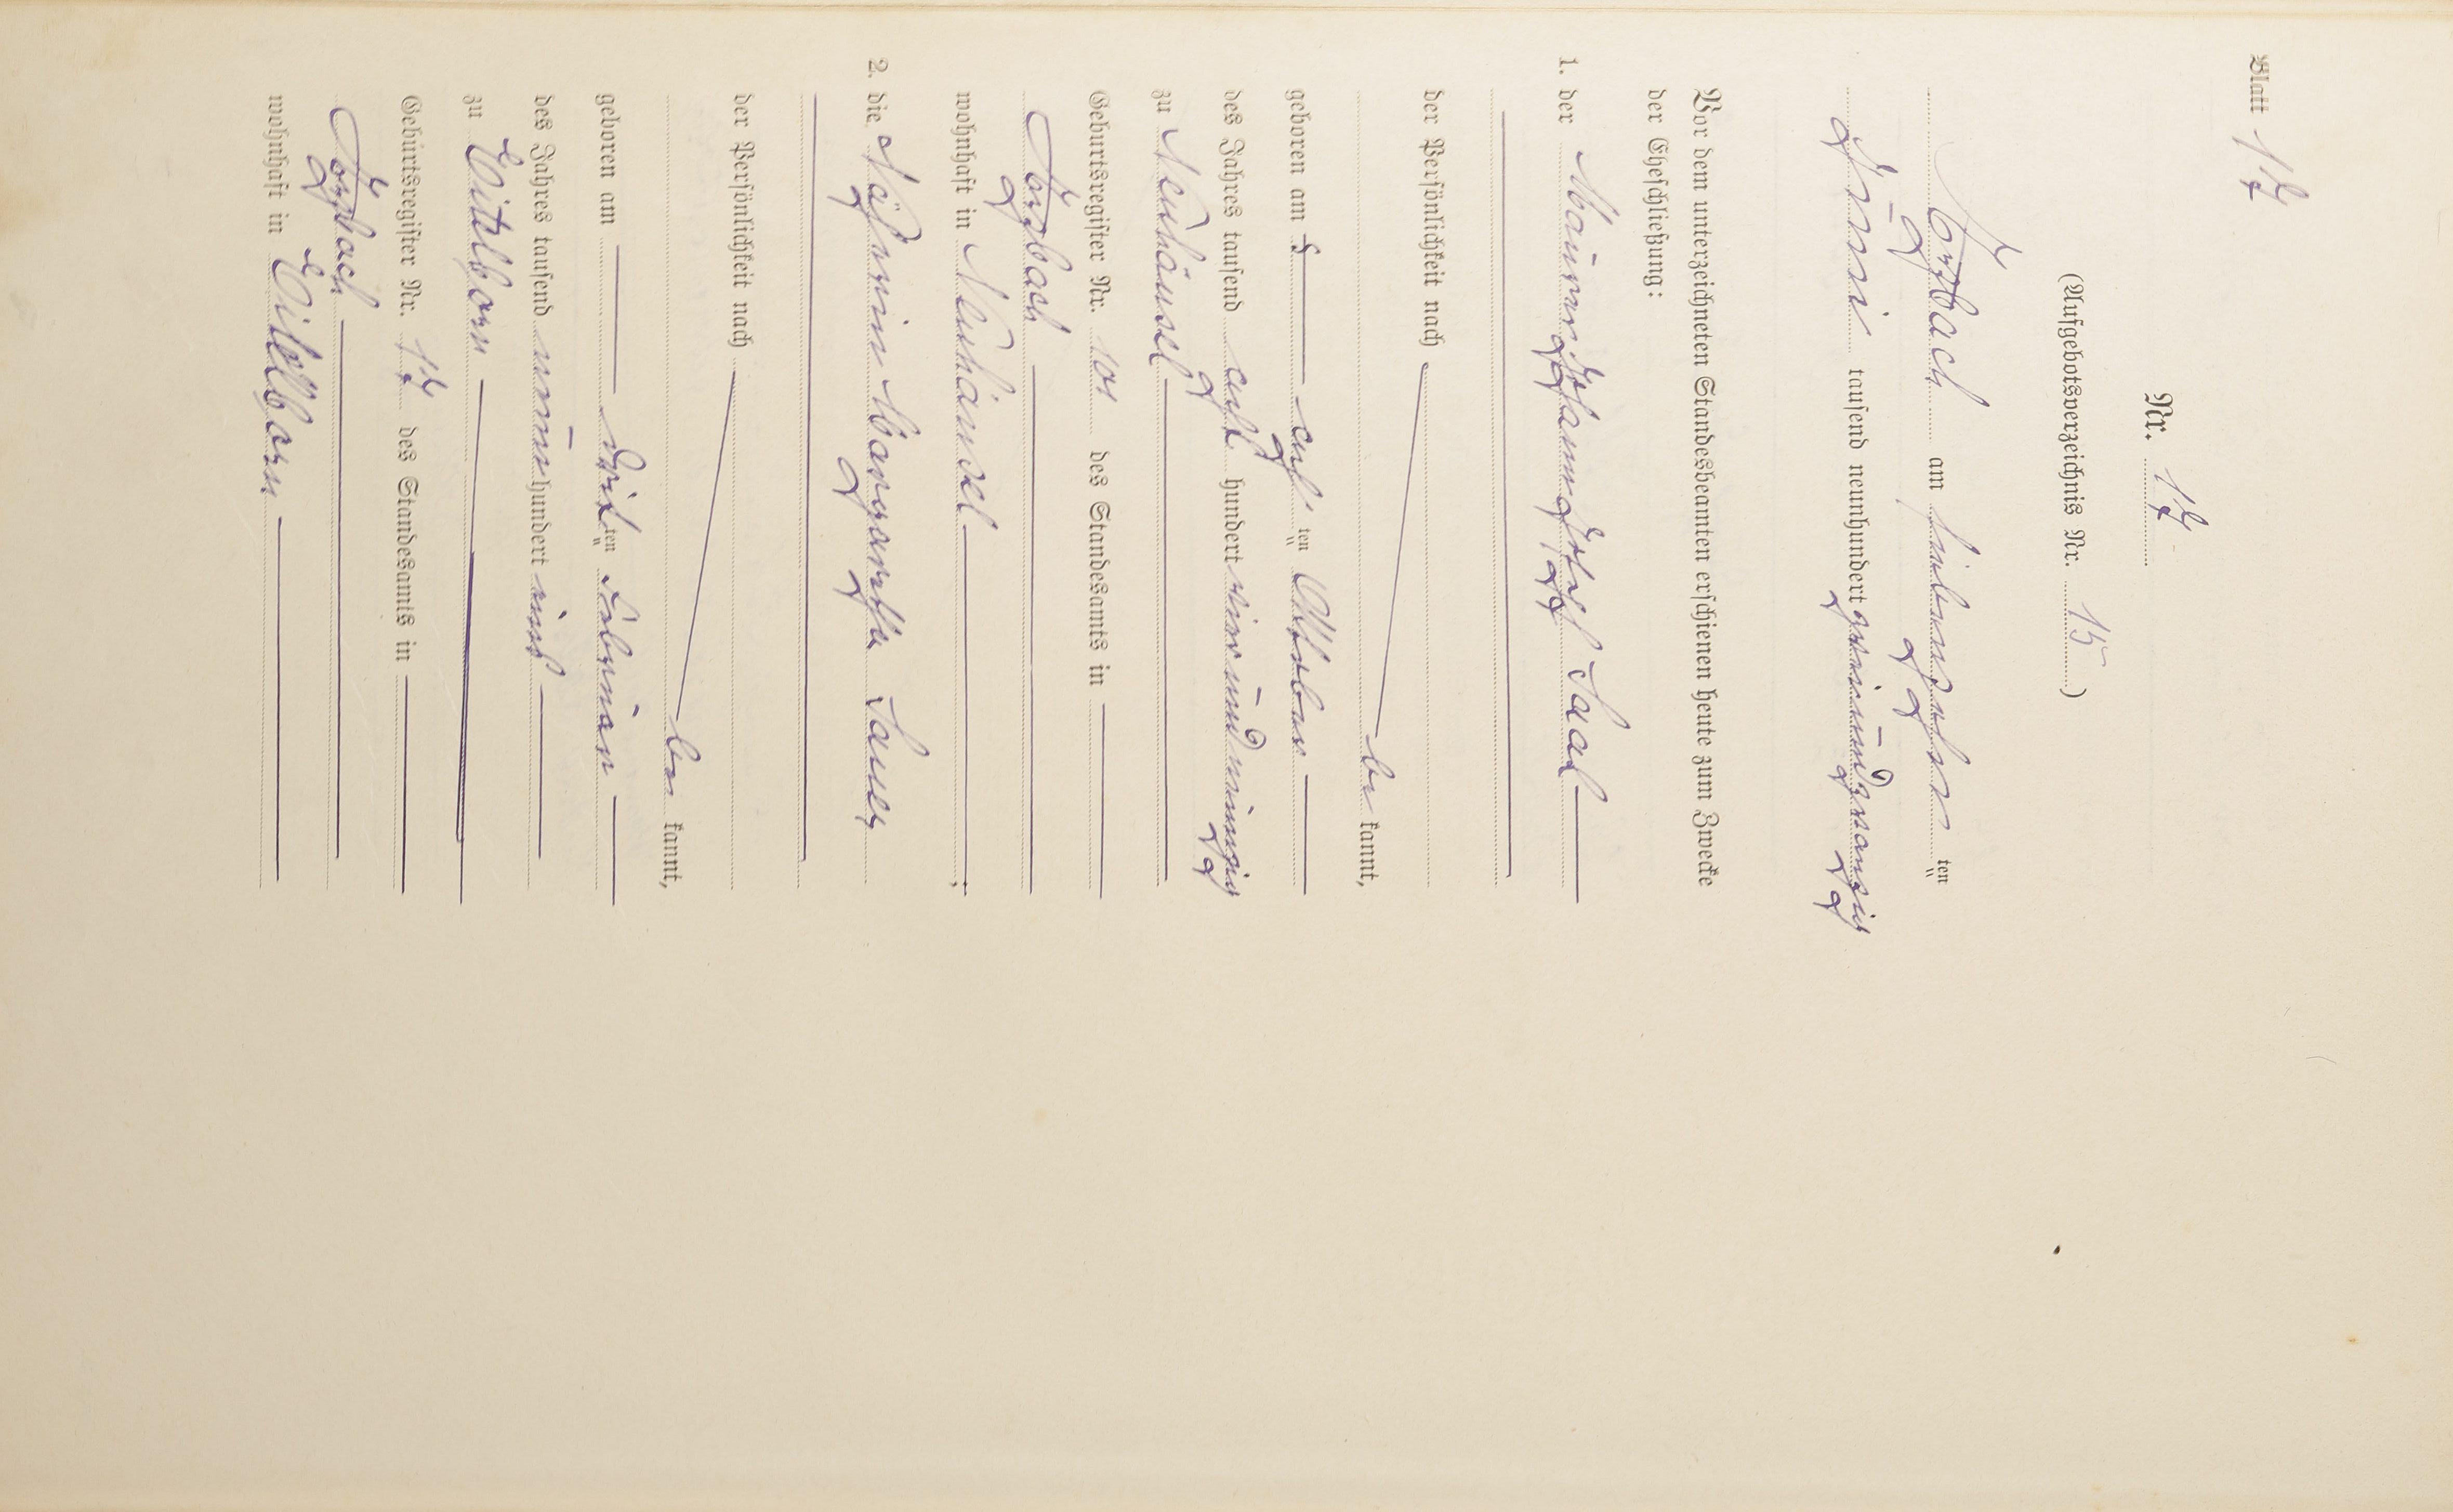 Blatt 17
Nr. 17
(Aufgebotsverzeichnis Nr. 15)
am siebenzehn ten
Juni tausend neunhundert zweiundzwanzig
Vor dem unterzeichneten Standesbeamten erschienen heute zum Zwecke
der Eheschließung:
1. der Maurer Johann Josef Saal
der Persönlichkeit nach
be kannt,
geboren am acht ten Oktober
des Jahres tausend acht hundert vierundneunzig
zu Neuhäusel
Geburtsregister Nr. 101 des Standesamts in
wohnhaft in Neuhäusel ;
2. die Näherin Margaretha
der Persönlichkeit nach
be kannt,
geboren am drit ten Februar
des Jahres tausend neun hundert eins
zu Eitelborn
Geburtsregister Nr. 17 des Standesamts in
wohnhaft in Eitelborn